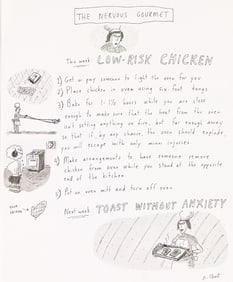 THE NERVOUS GOURMET
This week LOW-RISK CHICKEN
1) Get or pay someone to light the oven for you
2) Place chicken in oven using six-foot tongs
3) Bake for 1-1½ hours while you are close
enough to make sure that the heat from the oven
isn't setting anything on fire, but far enough away
so that if, by any chance, the oven should explode,
you will escape with only minor injuries
4) Make arrangements to have someone remove
chicken from oven while you stand at the opposite
end of the kitchen
5) Put on oven mitt and turn off oven
Next week TOAST WITHOUT ANXIETY
R. Chast